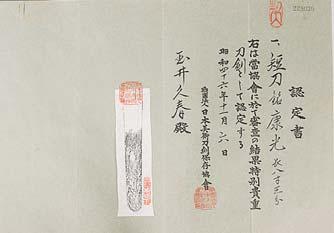 認定書
一、短刀 銘 康光 長八寸三分
右は當協會に於て審査の結果特別貴重
刀剣として認定する
昭和四十六年十一月六日
財團法人日本美術刀剣保存協會
玉井久春殿